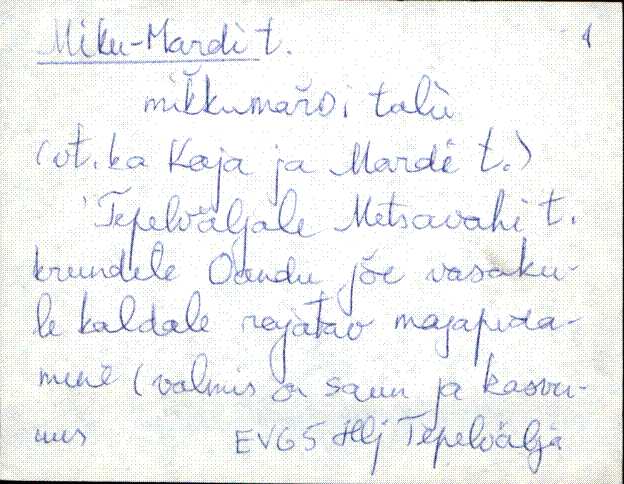 Miku-Mardi t. 1
mikkumarDi talu
(vt. ka Kaja ja Mardi t.)
Tepelväljale Metsavahi t.
krundile Oandu jõe vasaku-
le kaldale rajatav majapida-
mine (valmis on saun ja kasvu-
EV65 Hlj Tepelvälja